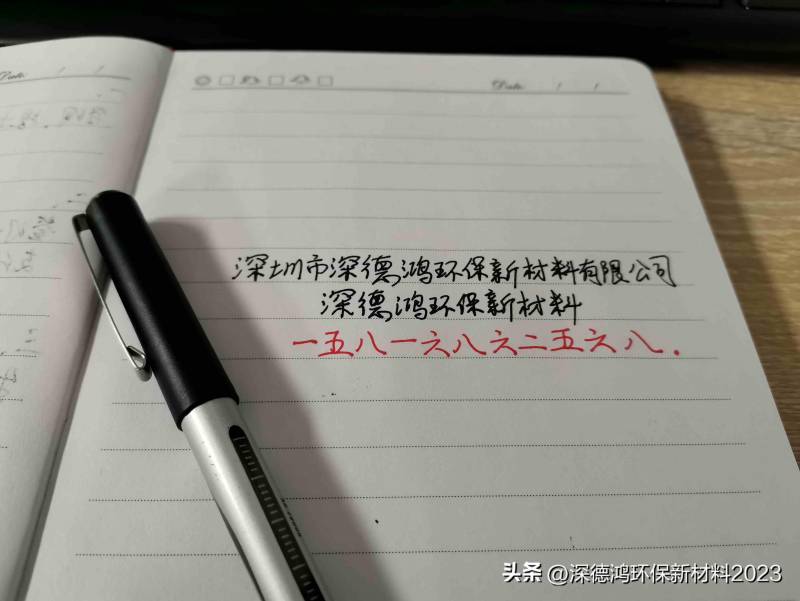 Date: / /
深圳市深德鸿环保新材料有限公司
深德鸿环保新材料
一五八一六八六二五六八.
头条 @深德鸿环保新材料2023